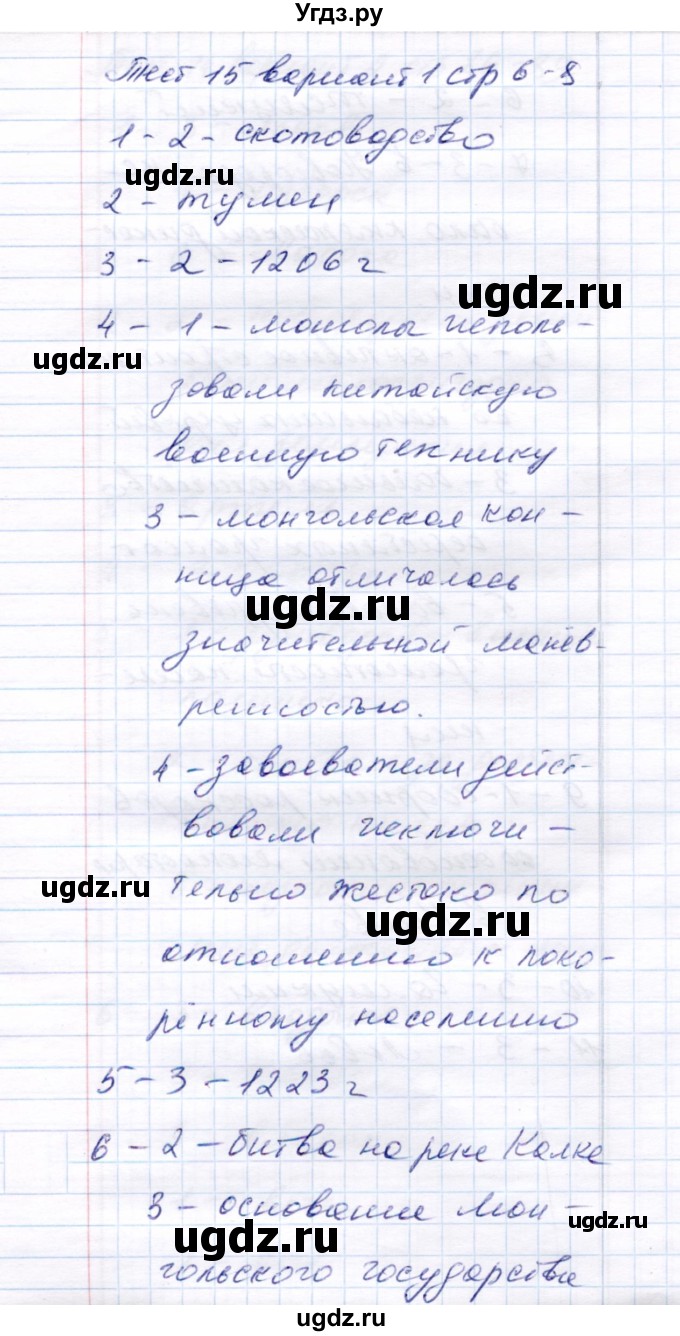 Угдз.ру
Тест 15 вариант 1 стр 6-8
1 - 2 - скотоводство
ugdz.ru
2 - тумен
3 - 2 - 1206 г
ugdz.ru
4 - 1 - монголы исполь-
ugdz.ru
зовали китайскую
военную технику
3 - монгольская кон-
ница отличалась
ugdz.ru
значительной манёв-
ренностью.
4 - завоеватели дейст-
вовали исключи-
тельно жестоко по
ugdz.ru
ugdz.ru
отношению к поко-
рённому населению
5 - 3 - 1223 г
6 - 2 - битва на реке Калке
3 - основание Мон-
ugdz.ru
ugdz.ru
гольского государства
ugdz.ru